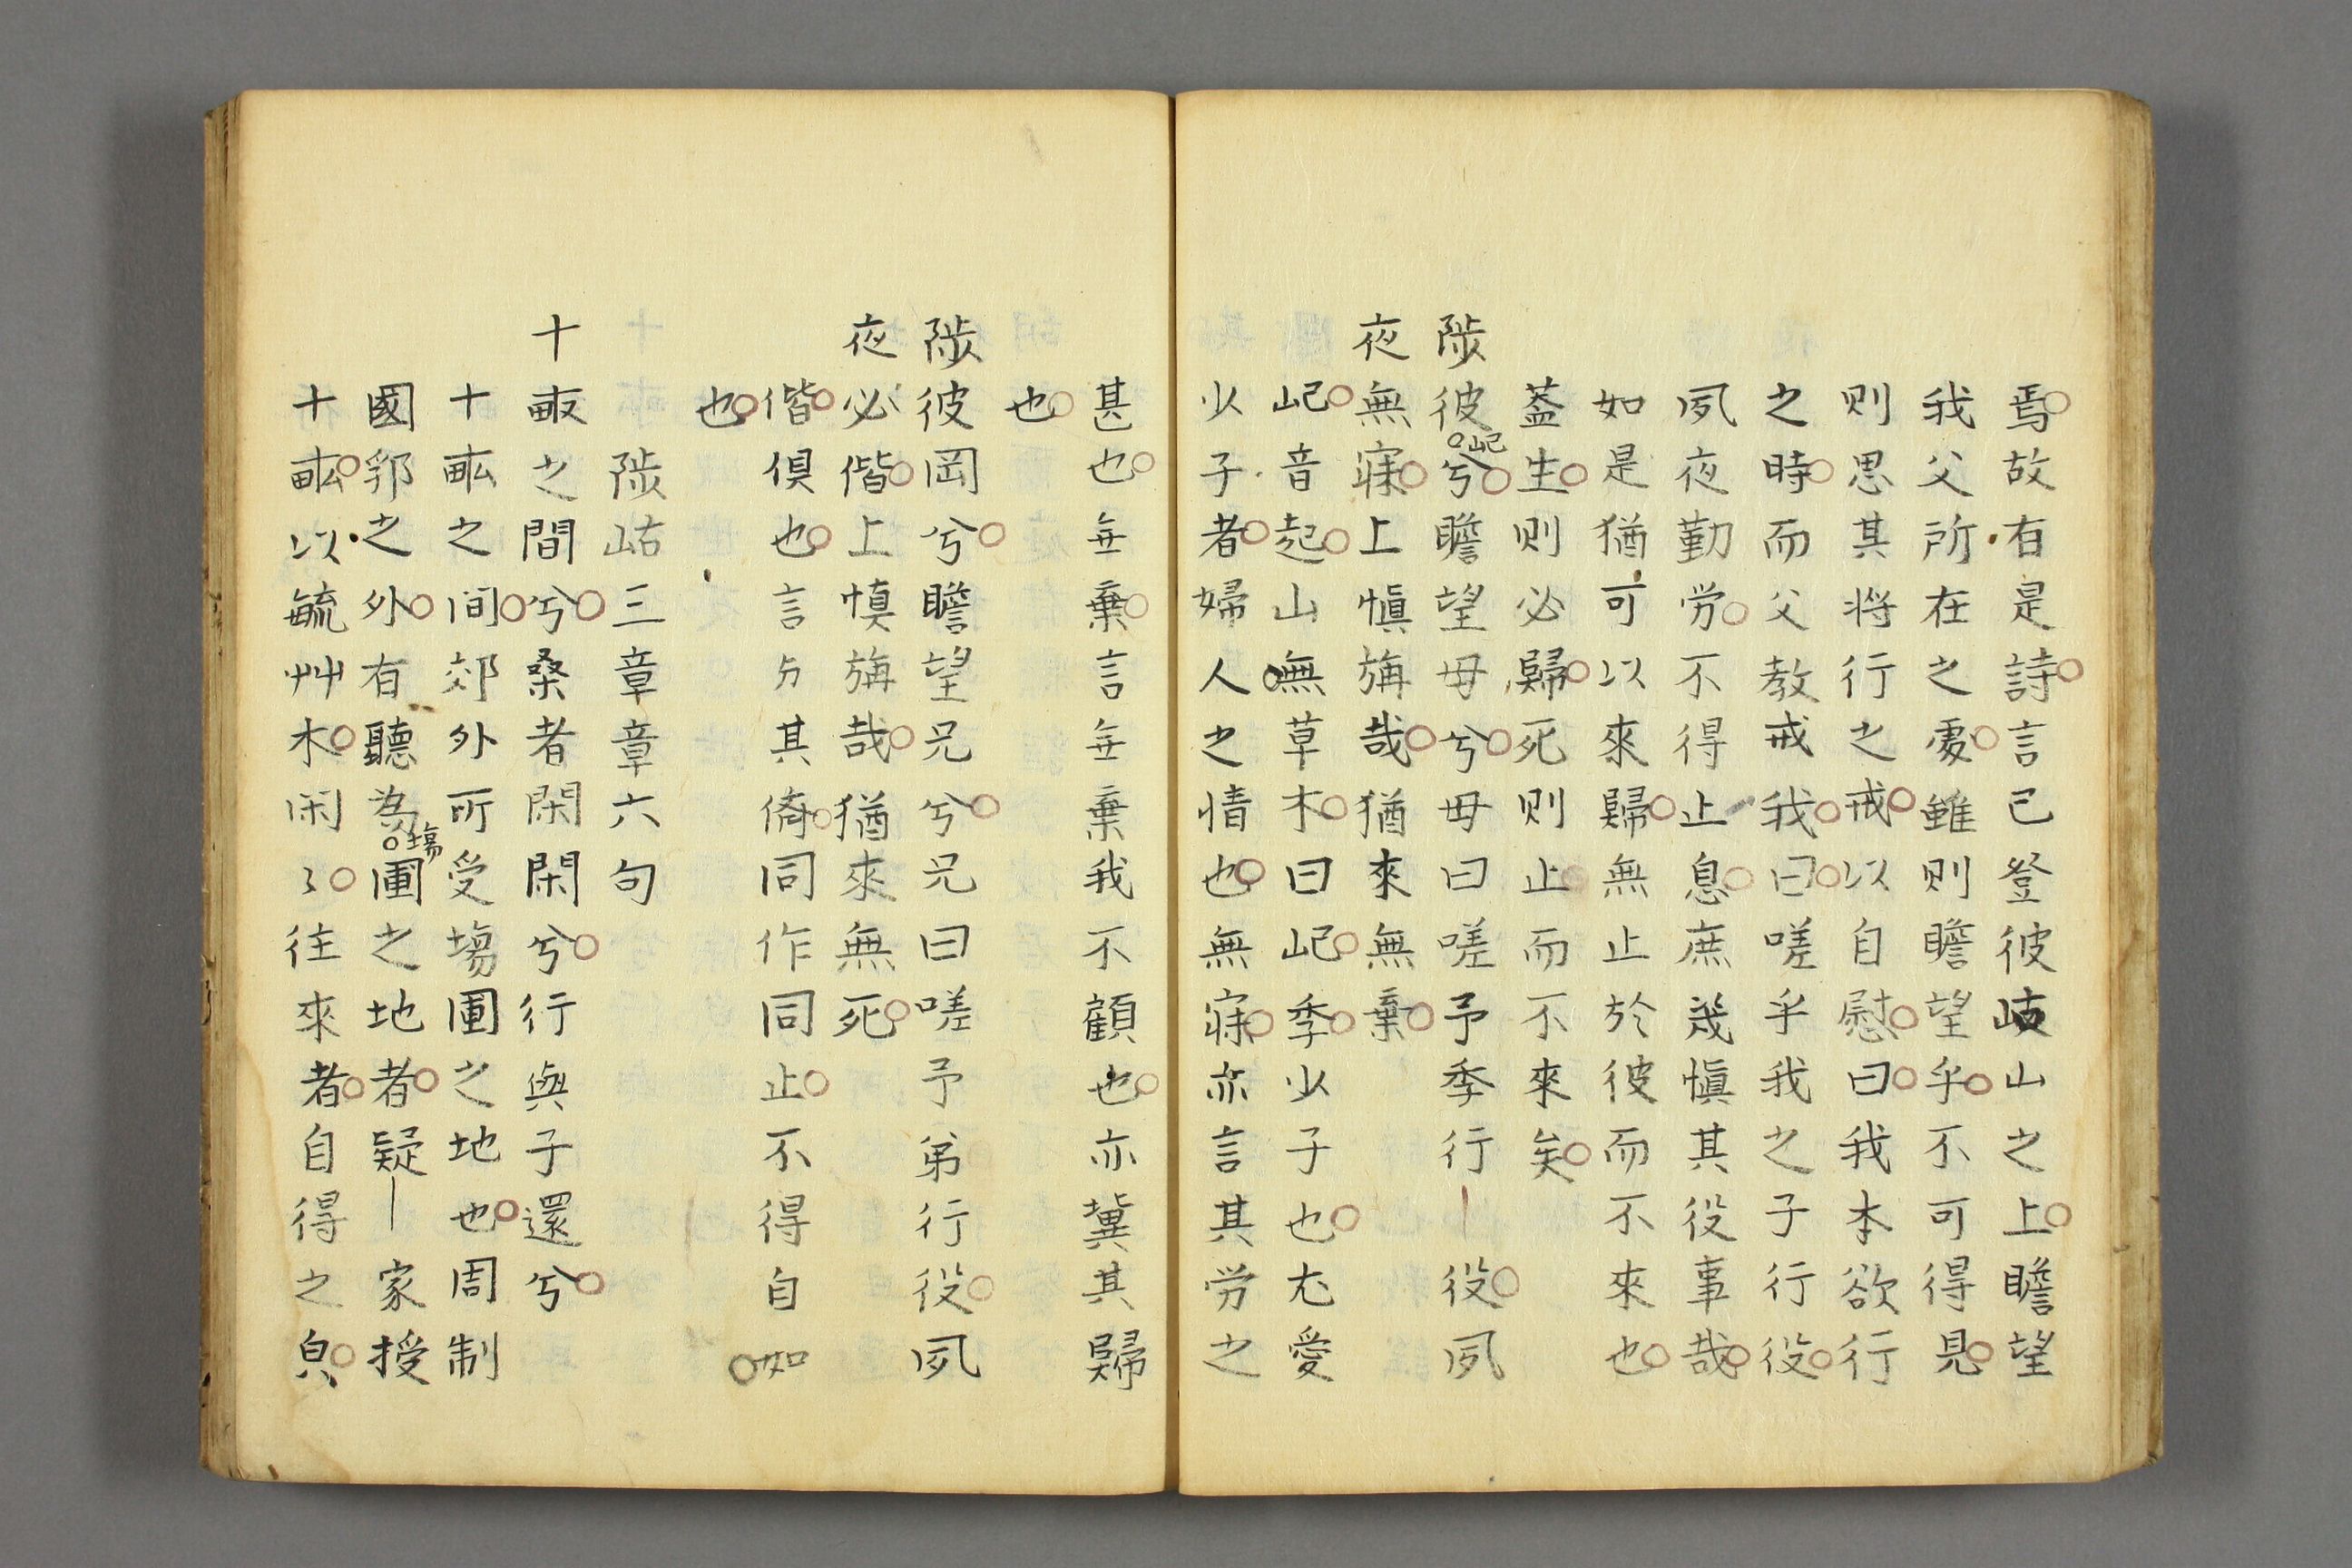 焉故有是詩言已登彼岵山之上瞻望
我父所在之處雖則瞻望乎不可得見
则思其將行之戒以自慰曰我本欲行
之時而父教戒我曰嗟乎我之子行役
夙夜勤労不得止息庶幾愼其役事哉
如是猶可以來歸無止於彼而不來也
葢生则必歸死则止而不來矣
陟彼屺兮瞻望母兮母曰嗟予季行役夙
夜無寐上愼旃哉猶來無棄
屺音起山無草木曰屺季少子也尤愛
少子者婦人之情也無寐亦言其労之
甚也無棄言無棄我不顧也亦冀其歸
也
陟彼岡兮瞻望兄兮兄曰嗟予弟行役夙
夜必偕上慎旃哉猶來無死
偕俱也言与其儕同作同止不得自如
也
陟岵三章章六句
十畝之間兮桑者閑閑兮行與子還兮
十畝之间郊外所受場圃之地也周制
國郛之外有聽為場圃之地者疑家授
十畝以毓艸木闲々往來者自得之皃